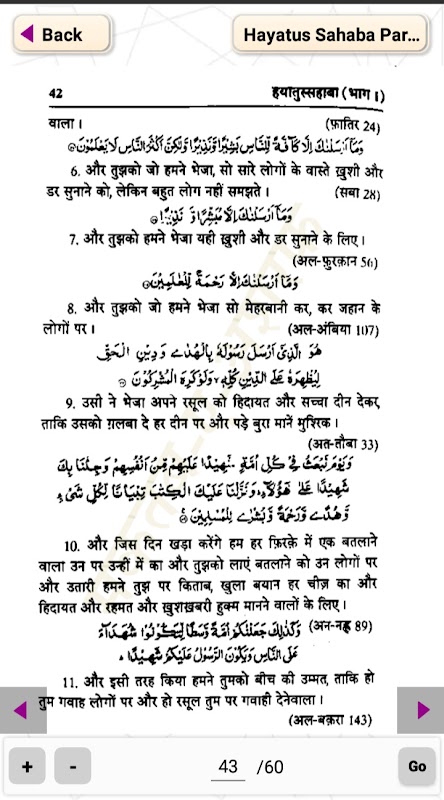 Back
Hayatus Sahaba Par...
42 हयातुस्सहाबा (भाग 1)
वाला। (फ़ातिर 24)
وَمَآ اَرْسَلْنٰكَ اِلَّا كَآفَّةً لِّلنَّاسِ بَشِيْرًا وَّنَذِيْرًا وَّلٰكِنَّ اَكْثَرَ النَّاسِ لَا يَعْلَمُوْنَ
6. और तुझको जो हमने भेजा, सो सारे लोगों के वास्ते ख़ुशी और
डर सुनाने को, लेकिन बहुत लोग नहीं समझते। (सबा 28)
وَمَآ اَرْسَلْنٰكَ اِلَّا مُبَشِّرًا وَّ نَذِيْرًا
7. और तुझको हमने भेजा यही ख़ुशी और डर सुनाने के लिए।
(अल-फ़ुरक़ान 56)
وَمَآ اَرْسَلْنٰكَ اِلَّا رَحْمَةً لِّلْعٰلَمِيْنَ
8. और तुझको जो हमने भेजा सो मेहरबानी कर, कर जहान के
लोगों पर। (अल-अंबिया 107)
هُوَ الَّذِىْٓ اَرْسَلَ رَسُوْلَهٗ بِالْهُدٰى وَ دِيْنِ الْحَقِّ
لِيُظْهِرَهٗ عَلَى الدِّيْنِ كُلِّهٖ وَلَوْ كَرِهَ الْمُشْرِكُوْنَ
9. उसी ने भेजा अपने रसूल को हिदायत और सच्चा दीन देकर,
ताकि उसको ग़लबा दे हर दीन पर और पड़े बुरा मानें मुश्रिक।
(अत-तौबा 33)
وَيَوْمَ نَبْعَثُ فِىْ كُلِّ اُمَّةٍ شَهِيْدًا عَلَيْهِمْ مِّنْ اَنْفُسِهِمْ وَجِئْنَا بِكَ
شَهِيْدًا عَلٰى هٰٓؤُلَآءِ وَنَزَّلْنَا عَلَيْكَ الْكِتٰبَ تِبْيَانًا لِّكُلِّ شَىْءٍ
وَّهُدًى وَّرَحْمَةً وَّبُشْرٰى لِلْمُسْلِمِيْنَ
10. और जिस दिन खड़ा करेंगे हम हर फ़िरक़े में एक बतलाने
वाला उन पर उन्हीं में का और तुझको लाएं बतलाने को उन लोगों पर
और उतारी हमने तुझ पर किताब, खुला बयान हर चीज़ का और
हिदायत और रहमत और ख़ुशख़बरी हुक्म मानने वालों के लिए।
وَكَذٰلِكَ جَعَلْنٰكُمْ اُمَّةً وَّسَطًا لِّتَكُوْنُوْا شُهَدَآءَ (अन-नह्ल 89)
عَلَى النَّاسِ وَيَكُوْنَ الرَّسُوْلُ عَلَيْكُمْ شَهِيْدًا
11. और इसी तरह किया हमने तुमको बीच की उम्मत, ताकि हो
तुम गवाह लोगों पर और हो रसूल तुम पर गवाही देनेवाला।
(अल-बक़रा 143)
+ - 43 /60 Go